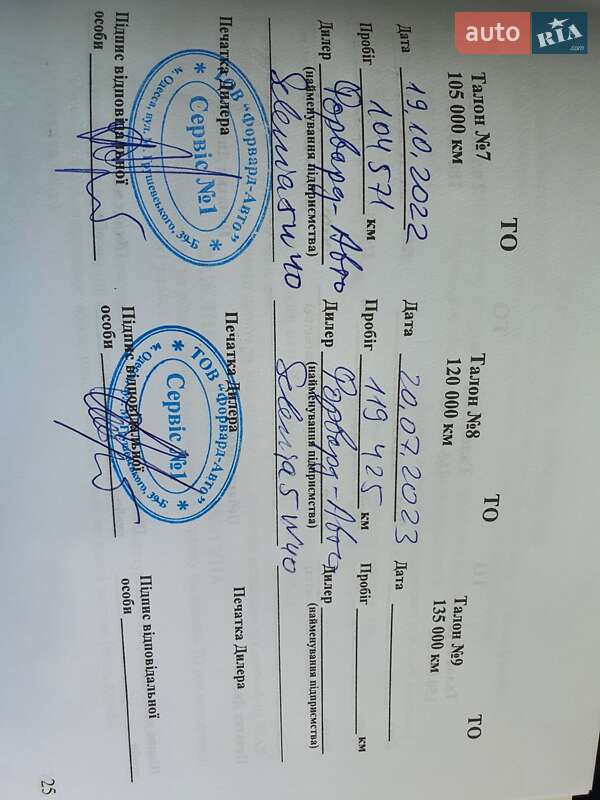 auto RIA .com
ТО
Талон №7
105 000 км
Дата 19.10.2022
Пробіг 104 571 км
Дилер Форвард-Авто
(найменування підприємства)
Selenia 5W40
Печатка Дилера
ТОВ "Форвард-Авто"
Сервіс №1
м. Одеса, вул. М. Грушевського, 39-Б
Підпис відповідальної
особи
ТО
Талон №8
120 000 км
Дата 20.07.2023
Пробіг 119 425 км
Дилер Форвард-Авто
(найменування підприємства)
Selenia 5W40
Печатка Дилера
ТОВ "Форвард-Авто"
Сервіс №1
Підпис відповідальної
особи
ТО
Талон №9
135 000 км
Дата
Пробіг км
Дилер
(найменування підприємства)
Печатка Дилера
Підпис відповідальної
особи
25